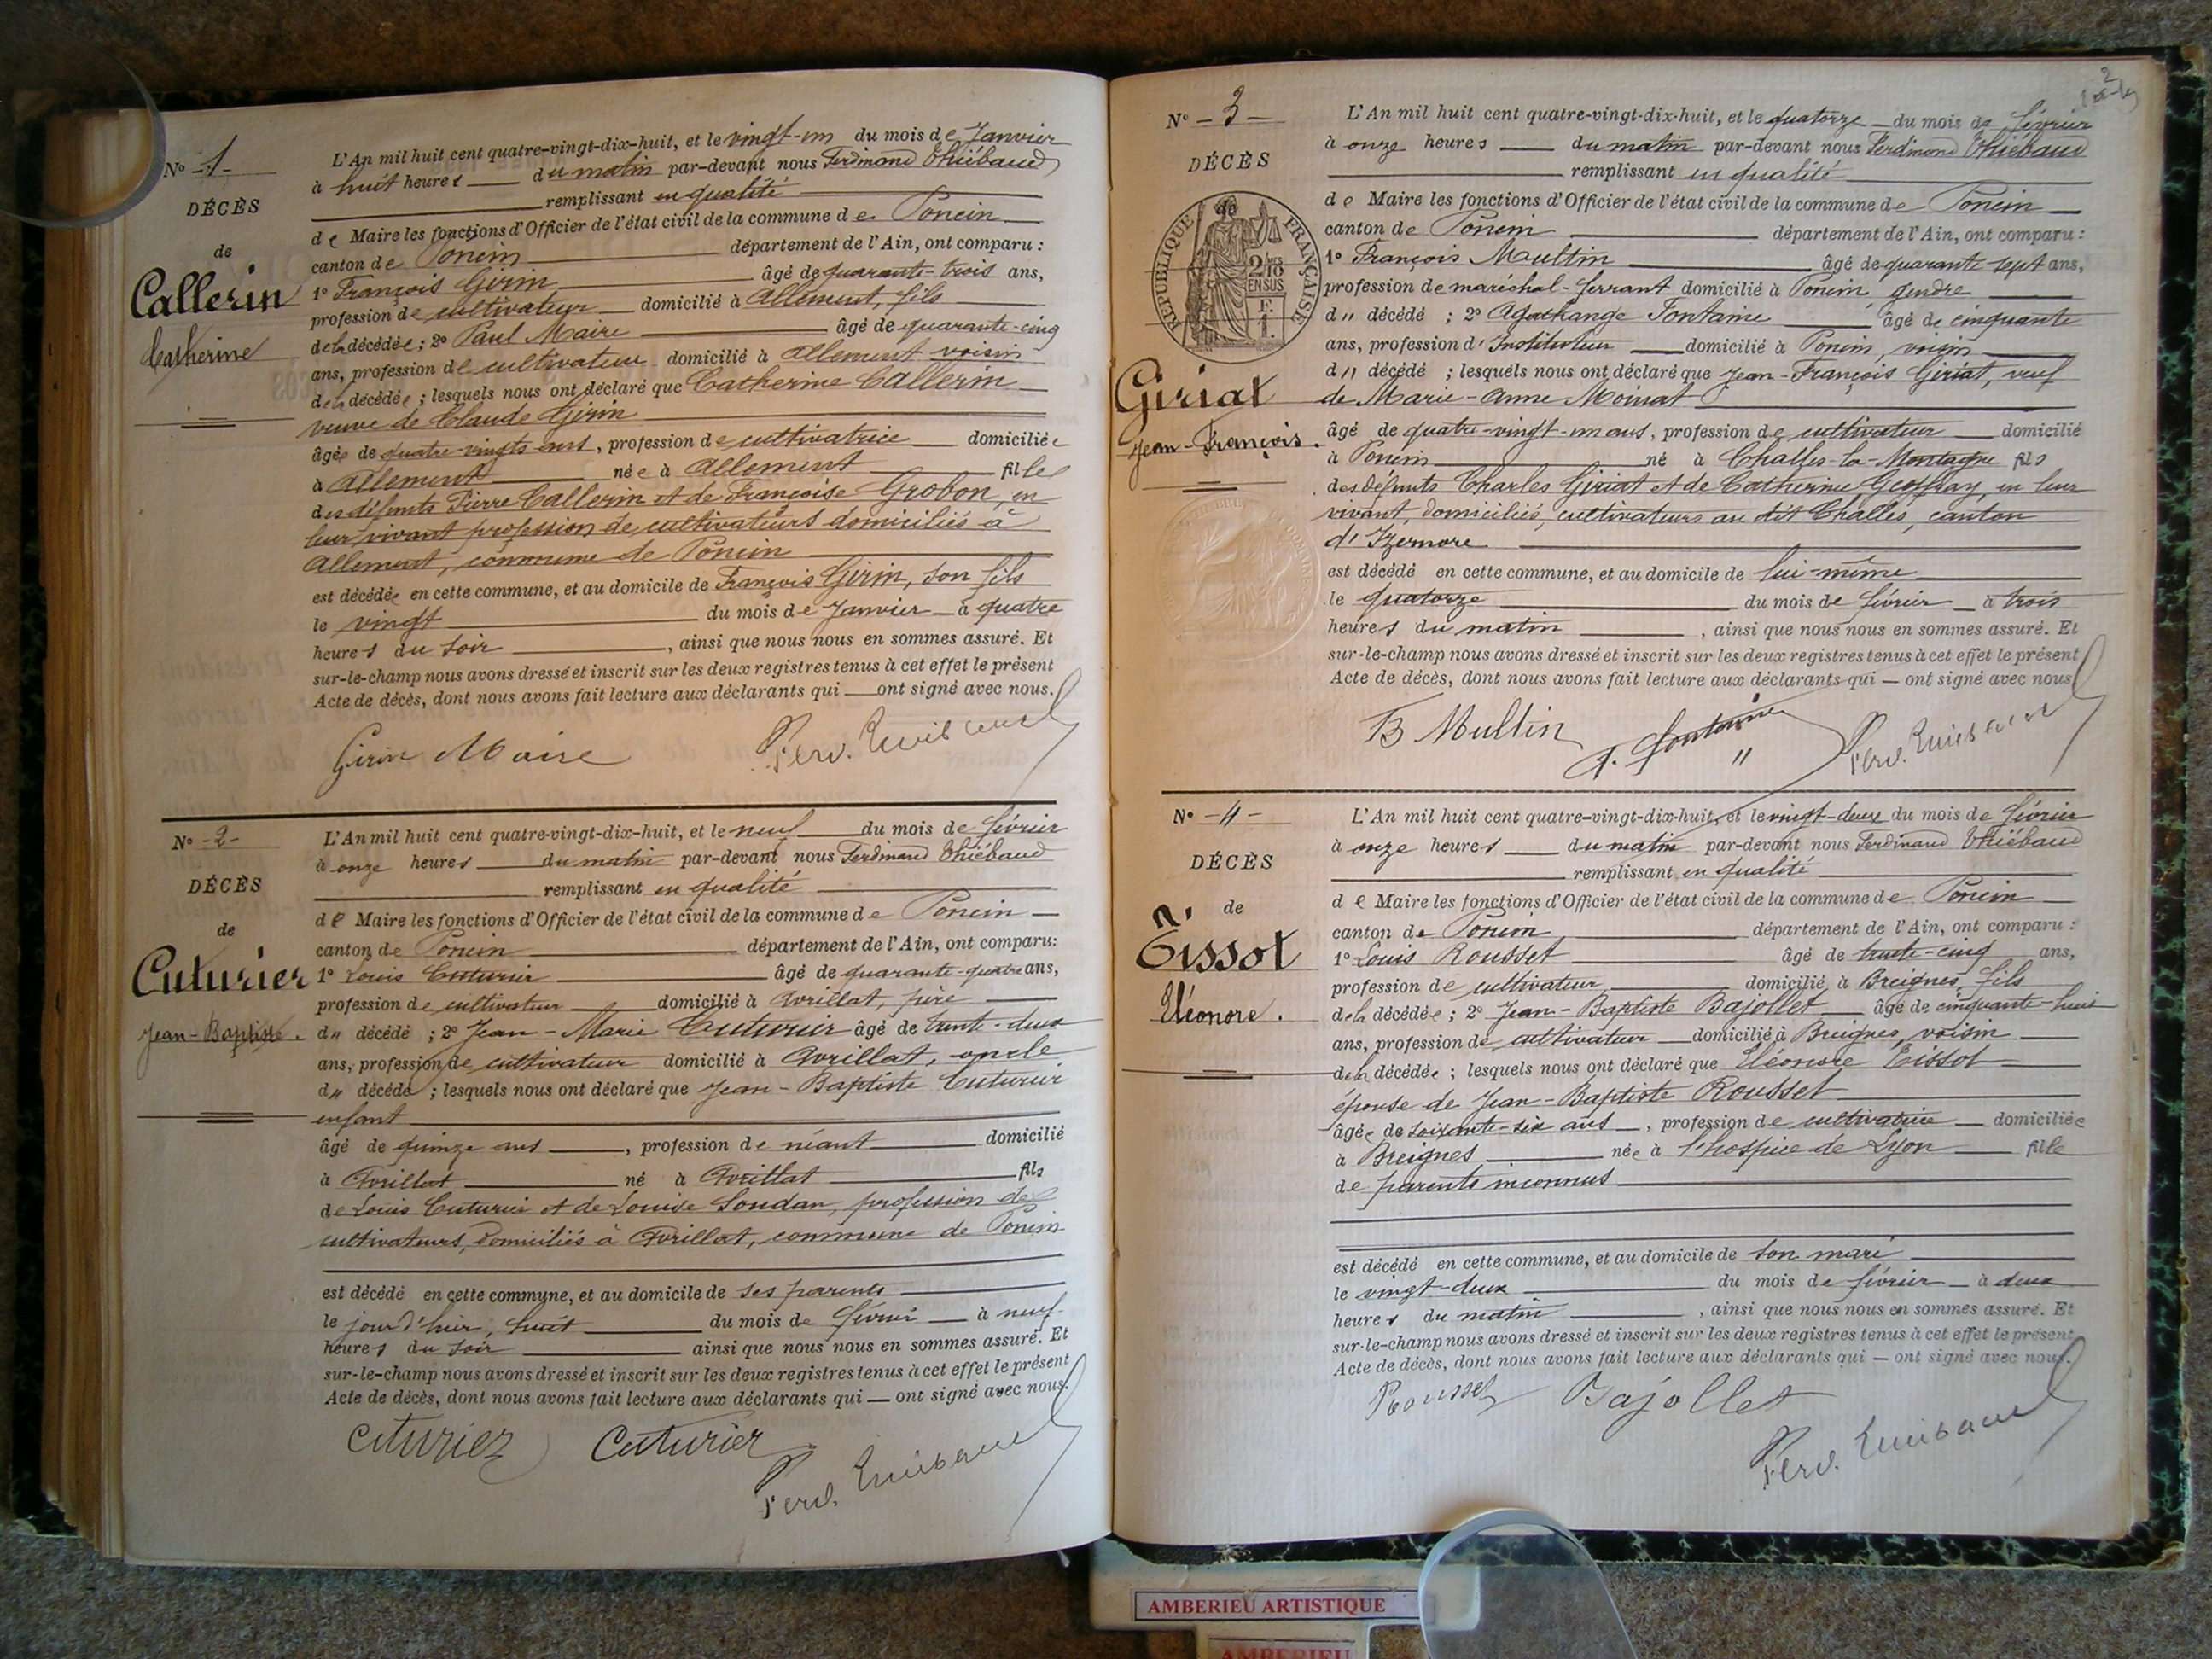 N° -1-
DÉCÈS
de
Callerin
Catherine
L'An mil huit cent quatre-vingt-dix-huit, et le vingt-un du mois de Janvier
à huit heures du matin par-devant nous Ferdinand Thiébaud
remplissant en qualité
de Maire les fonctions d'Officier de l'état civil de la commune de Poncin
canton de Poncin département de l'Ain, ont comparu :
1° François Girin âgé de quarante-trois ans,
profession de cultivateur domicilié à Allement, fils
de la décédée ; 2° Paul Maire âgé de quarante-cinq
ans, profession de cultivateur domicilié à Allement voisin
de la décédée ; lesquels nous ont déclaré que Catherine Callerin
veuve de Claude Girin
âgée de quatre-vingts ans, profession de cultivatrice domiciliée
à Allement née à Allement fille
des défunts Pierre Callerin et de Françoise Grobon, en
leur vivant profession de cultivateurs domiciliés à
Allement, commune de Poncin
est décédée en cette commune, et au domicile de François Girin, son fils
le vingt du mois de Janvier à quatre
heures du soir, ainsi que nous nous en sommes assuré. Et
sur-le-champ nous avons dressé et inscrit sur les deux registres tenus à cet effet le présent
Acte de décès, dont nous avons fait lecture aux déclarants qui ont signé avec nous.
Girin Maire Ferd. Thiébaud
N° -2-
DÉCÈS
de
Cuturier
Jean-Baptiste.
L'An mil huit cent quatre-vingt-dix-huit, et le neuf du mois de février
à onze heures du matin par-devant nous Ferdinand Thiébaud
remplissant en qualité
de Maire les fonctions d'Officier de l'état civil de la commune de Poncin
canton de Poncin département de l'Ain, ont comparu:
1° Louis Cuturier âgé de quarante-quatre ans,
profession de cultivateur domicilié à Avrillat, père
d" décédé ; 2° Jean-Marie Cuturier âgé de trente-deux
ans, profession de cultivateur domicilié à Avrillat, oncle
d" décédé ; lesquels nous ont déclaré que Jean-Baptiste Cuturier
enfant
âgé de quinze ans, profession de néant domicilié
à Avrillat né à Avrillat fils
de Louis Cuturier et de Louise Soudan, profession de
cultivateurs, domiciliés à Avrillat, commune de Poncin
est décédé en cette commune, et au domicile de ses parents
le jour d'hier, huit du mois de février à neuf
heures du soir ainsi que nous nous en sommes assuré. Et
sur-le-champ nous avons dressé et inscrit sur les deux registres tenus à cet effet le présent
Acte de décès, dont nous avons fait lecture aux déclarants qui — ont signé avec nous.
Cuturier Cuturier
Ferd. Thiébaud
2
N° -3-
DÉCÈS
RÉPUBLIQUE FRANÇAISE
2/10 EN SUS
Giriat
Jean-François.
L'An mil huit cent quatre-vingt-dix-huit, et le quatorze du mois de février
à onze heures du matin par-devant nous Ferdinand Thiébaud
remplissant en qualité
de Maire les fonctions d'Officier de l'état civil de la commune de Poncin
canton de Poncin département de l'Ain, ont comparu :
1° François Maultin âgé de quarante sept ans,
profession de maréchal-ferrant domicilié à Poncin gendre
d" décédé ; 2° Agathange Fontaine âgé de cinquante
ans, profession d'Instituteur domicilié à Poncin, voisin
d" décédé ; lesquels nous ont déclaré que Jean-François Giriat, veuf
de Marie-Anne Moinat
âgé de quatre-vingt-un ans, profession de cultivateur domicilié
à Poncin né à Challes-la-Montagne fils
des défunts Charles Giriat et de Catherine Geoffray, en leur
vivant, domiciliés, cultivateurs au dit Challes, canton
d'Izernore
est décédé en cette commune, et au domicile de lui-même
le quatorze du mois de février à trois
heures du matin, ainsi que nous nous en sommes assuré. Et
sur-le-champ nous avons dressé et inscrit sur les deux registres tenus à cet effet le présent
Acte de décès, dont nous avons fait lecture aux déclarants qui — ont signé avec nous
B Mullin A. Fontaine Ferd. Thiébaud
N° -4-
DÉCÈS
de
Tissot
Eléonore.
L'An mil huit cent quatre-vingt-dix-huit, et le vingt-deux du mois de février
à onze heures du matin par-devant nous Ferdinand Thiébaud
remplissant en qualité
de Maire les fonctions d'Officier de l'état civil de la commune de Poncin
canton de Poncin département de l'Ain, ont comparu :
1° Louis Rousset âgé de trente-cinq ans,
profession de cultivateur domicilié à Breignes, fils
de la décédée ; 2° Jean-Baptiste Bajollet âgé de cinquante-huit
ans, profession de cultivateur domicilié à Breignes, voisin
de la décédée ; lesquels nous ont déclaré que Eléonore Tissot
épouse de Jean-Baptiste Rousset
âgée de soixante-six ans, profession de cultivatrice domiciliée
à Breignes née à l'hospice de Lyon fille
de parents inconnus
est décédé en cette commune, et au domicile de son mari
le vingt-deux du mois de février à deux
heures du matin, ainsi que nous nous en sommes assuré. Et
sur-le-champ nous avons dressé et inscrit sur les deux registres tenus à cet effet le présent
Acte de décès, dont nous avons fait lecture aux déclarants qui — ont signé avec nous.
Rousset Bajollet
Ferd. Thiébaud
AMBERIEU ARTISTIQUE
AMBERIEU